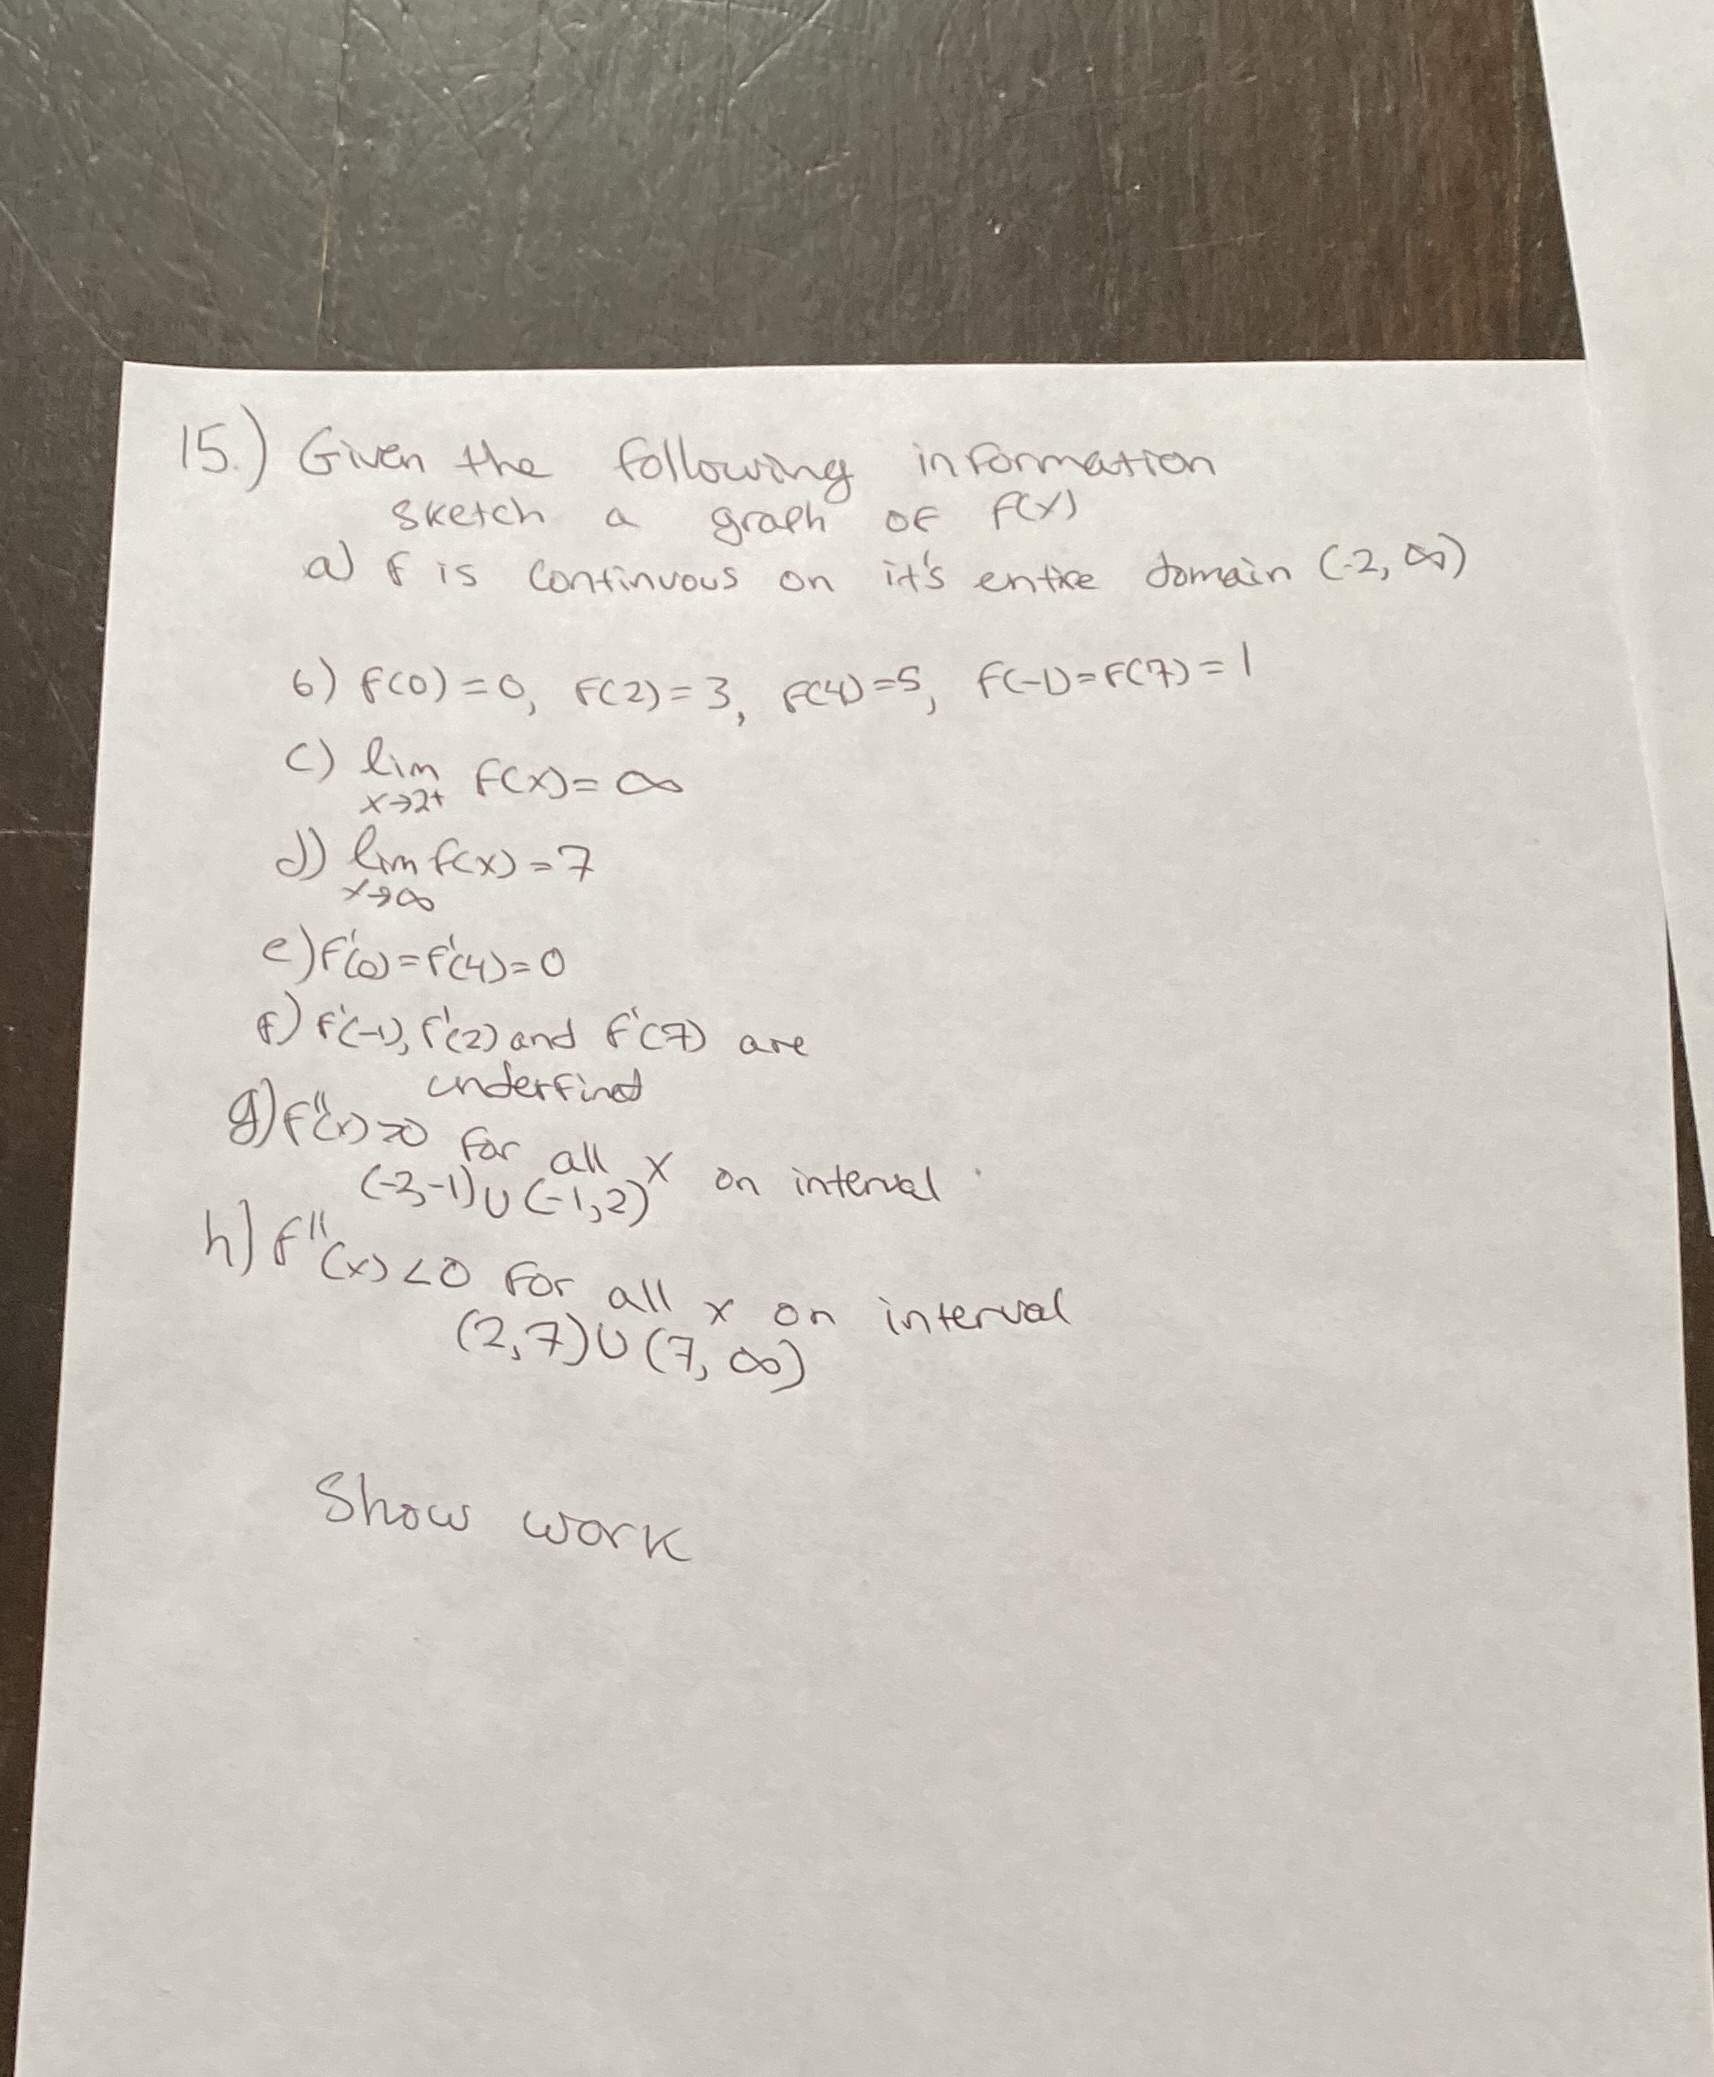 15.) Given the following information
sketch a graph of f(x)
a) f is continuous on it's entire domain (-2, ∞)
b) f(0)=0, f(2)=3, f(4)=5, f(-1)=f(7)=1
c) lim f(x)=∞
x→2+
d) lim f(x)=7
x→∞
e) f'(0)=f'(4)=0
f) f'(-1), f'(2) and f'(7) are
underfined
g) f''(x)>0 for all x on interval
(-2,-1)∪(-1,2)
h) f''(x)<0 for all x on interval
(2,7)∪(7,∞)
Show work